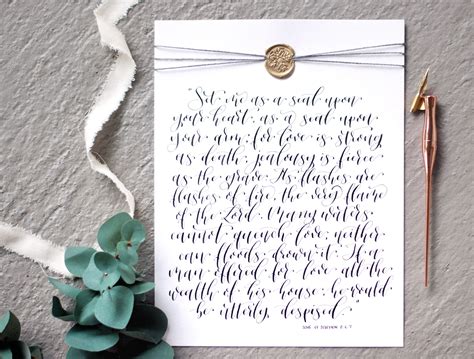 "Set me as a seal upon
your heart, as a seal upon
your arm; for love is strong
as death, jealousy is fierce
as the grave. Its flashes are
flashes of fire, the very flame
of the Lord. Many waters
cannot quench love, neither
can floods drown it. If a
man offered for love all the
wealth of his house, he would
be utterly despised."
SONG OF SOLOMON 8:6-7